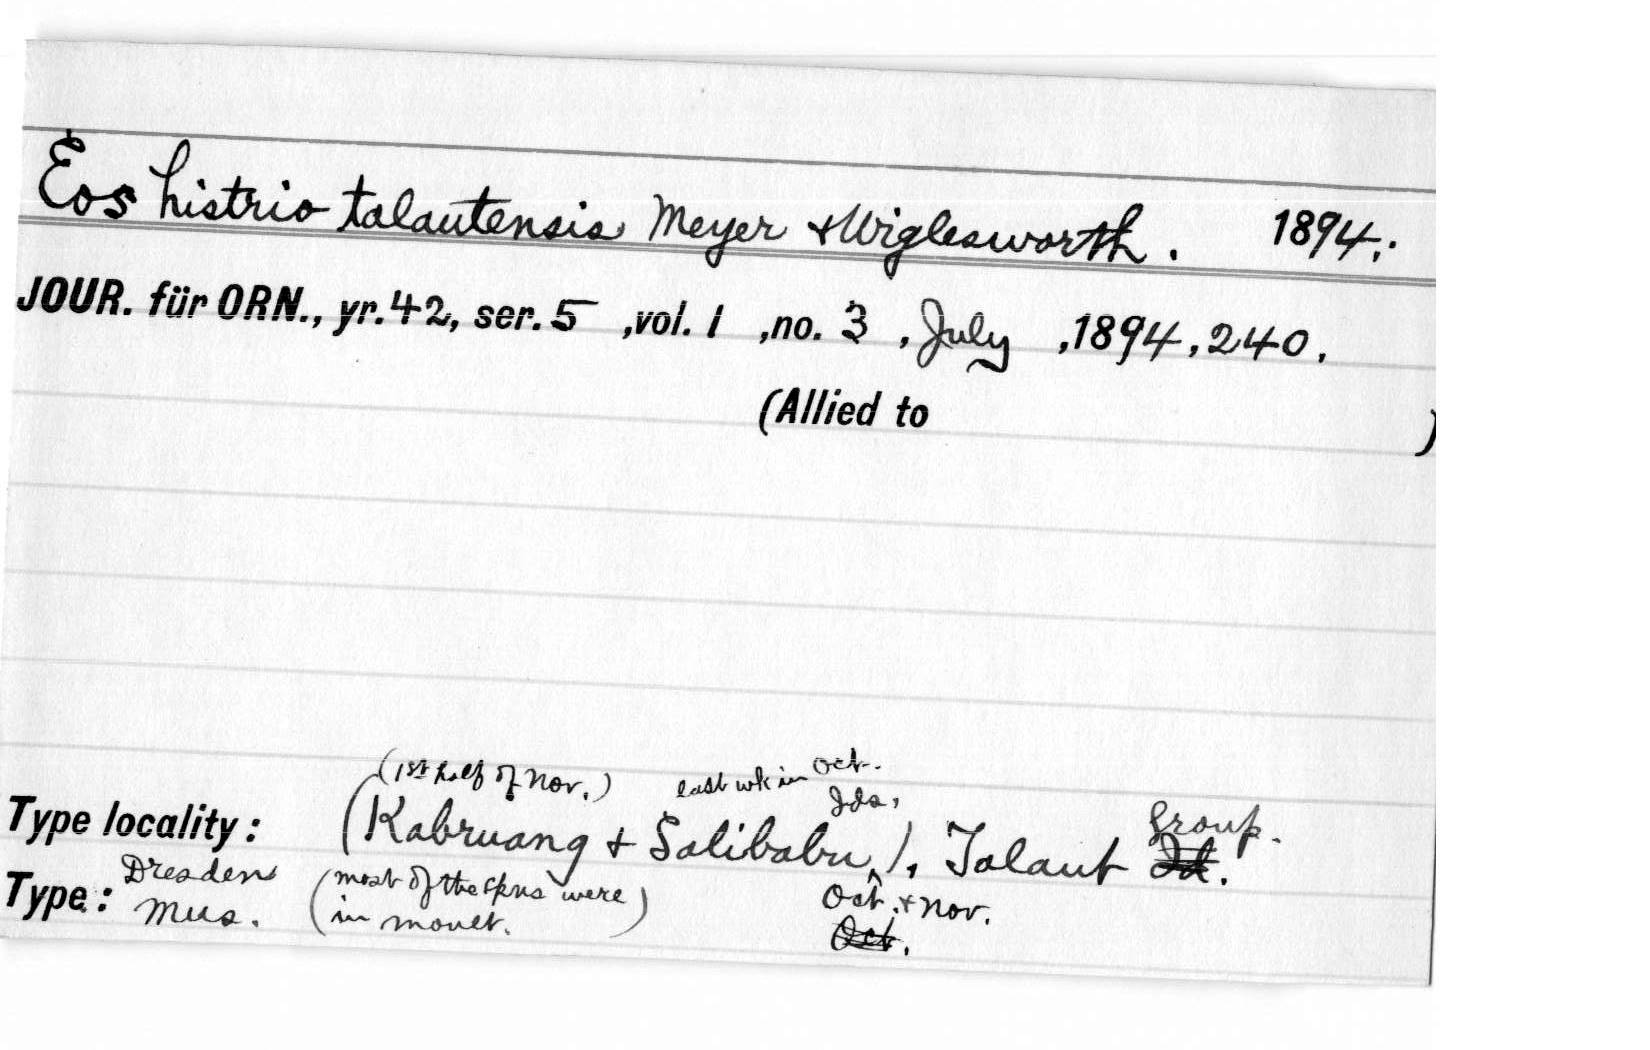 Eos histrio talautensis Meyer & Wiglesworth. 1894.:
JOUR. für ORN., yr. 42, ser. 5 ,vol. 1 ,no. 3 , July ,1894, 240.
(Allied to )
(1st half of Nov.) last wk in Oct.
Ids.
Type locality: (Kabruang + Salibabu ), Talaut Id.
Group.
Type: Dresden Mus. (most of the spns were in moult.)
Oct. + Nov.
Oct.